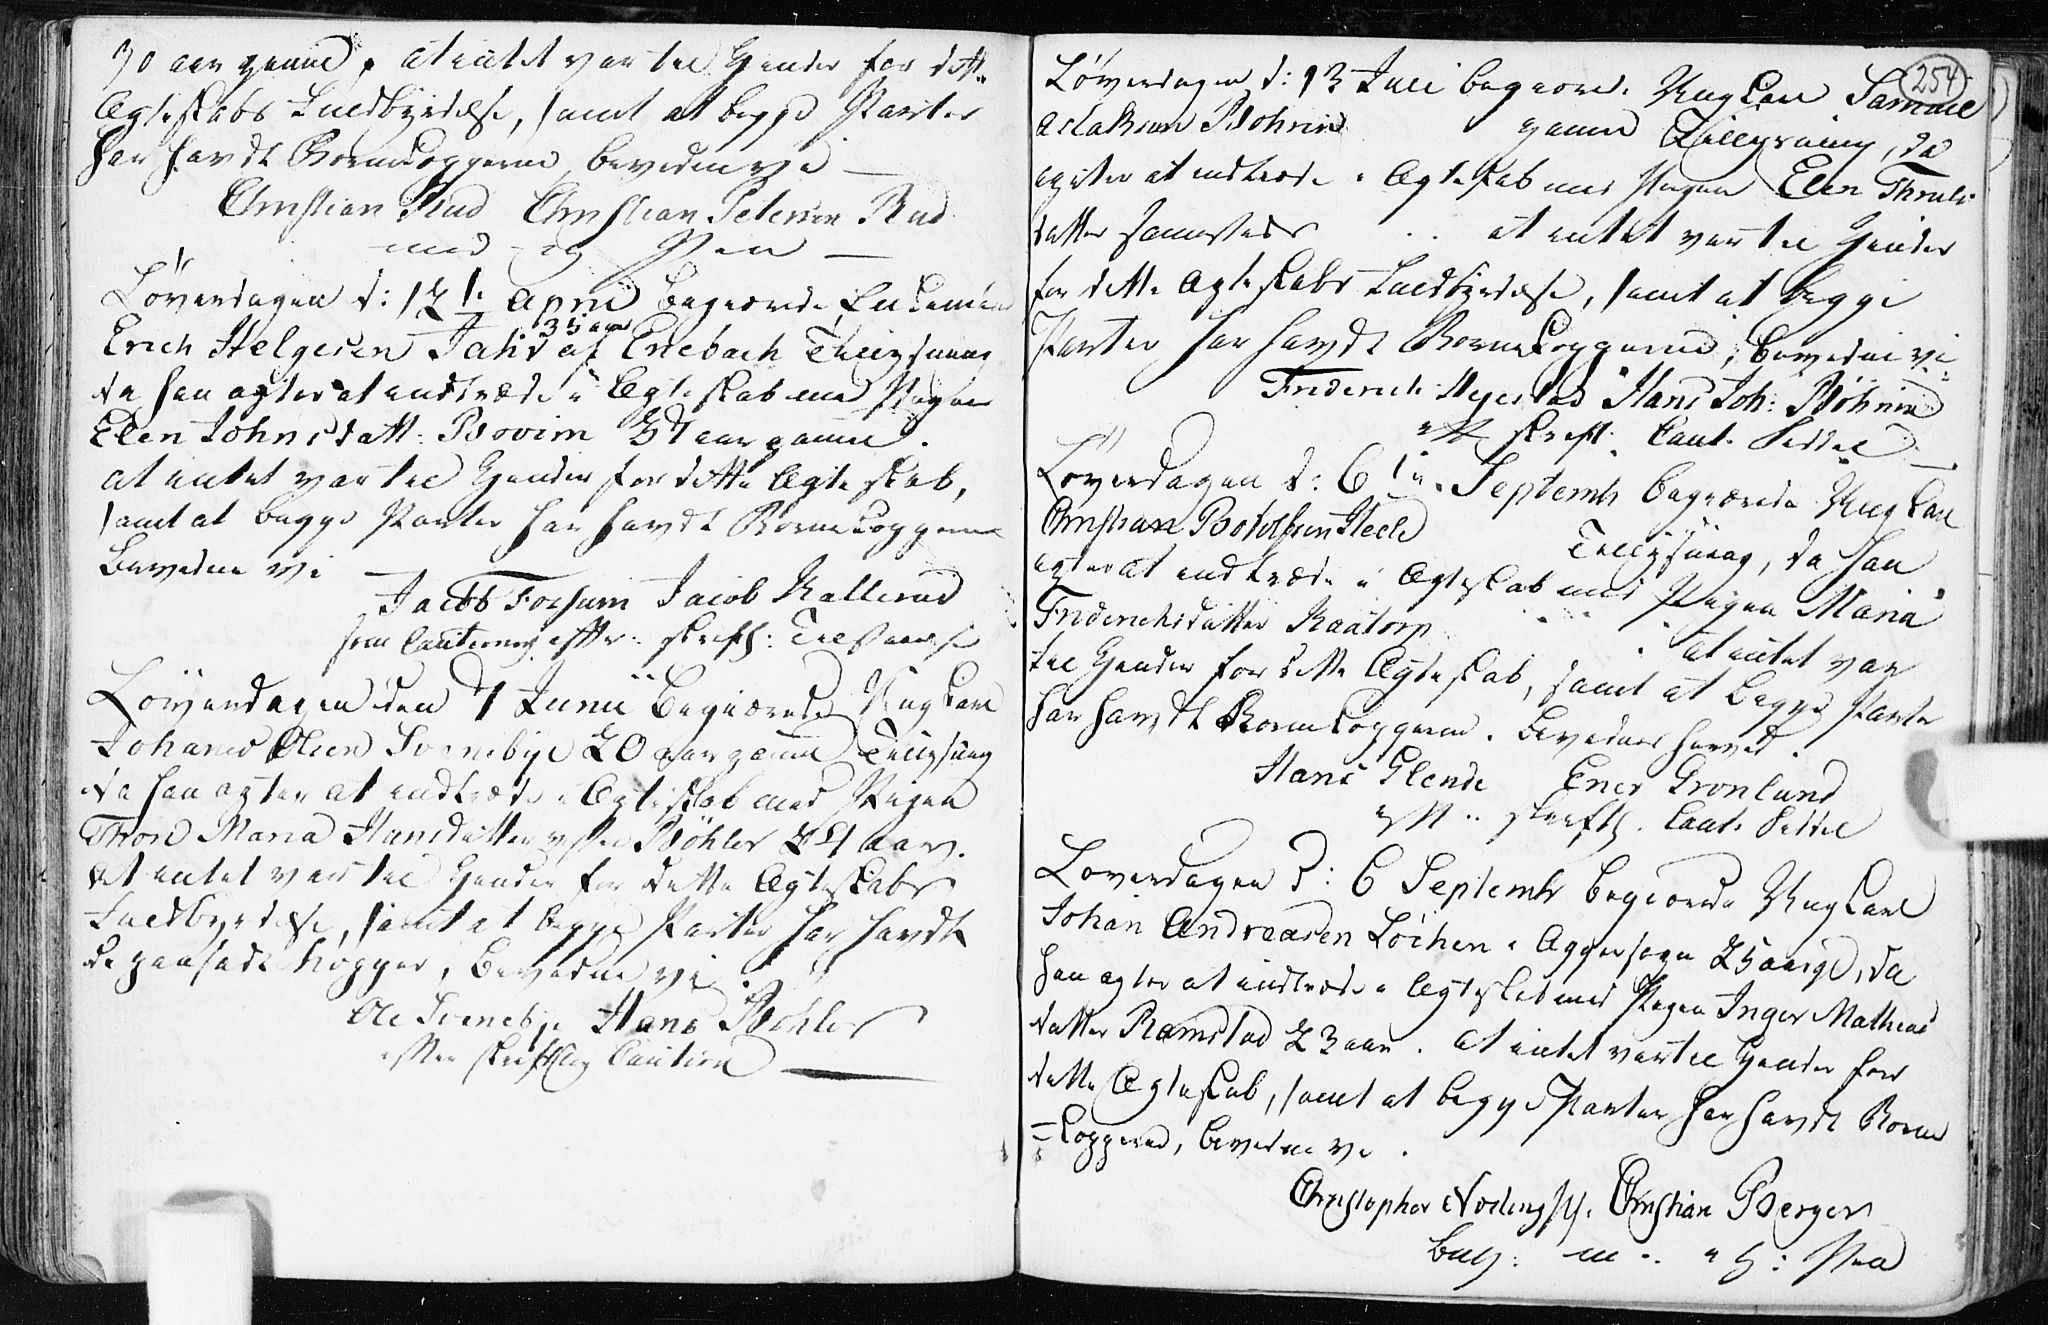 30 aar gammel, at intet var til Hinder for dette
Ægteskabs Fuldbyrdelse, samt at begge Parter
har havdt Børnekopperne, bevidner vi
Christian Rud Christian Petersen Rud
med og Pen
Löverdagen d: 12te April begiærede Enkemand
Erich Helgesen Jahr 35 aar af Enebach Tillysning
da han agter at indtræde i Ægteskab med Pigen
Elen Johnsdatt: Bovim 27 aar gammel.
at intet var til Hinder for dette Ægteskab,
samt at begge Parter har havdt Børnekopperne
Bevidner vi
Jacob Fossum Jacob Kallerud
som Cautionister efter skriftl: Tilstaaelse
Löverdagen den 7 Junii Begiærede Ung Karl
Johannes Olsen Svenebye 20 aar gammel Tillysning
da han agter at indtræde i Ægteskab med Pigen
Thore Maria Hansdatter Böhler 24 aar.
at intet var til Hinder for dette Ægteskabs
Fuldbyrdelse, samt at begge Parter har havdt
de Kopper, Bevidner vi.
Ole Svenebye Hans Böhler
efter skriftlig Caution
254
Löverdagen d: 13 Juli begiærede Ung Karl Samuel
Aslaksen Böhnen gammel Tillysning, da
agter at indtræde i Ægteskab med Pigen Elen Thruls
datter sammesteds at intet var til Hinder
for dette Ægteskabs Fuldbyrdelse, samt at begge
Parter har havdt Børnekopperne, bevidner vi
Friderich Hans Joh: Böhnen
eft skriftl. Caut. Seddel
Løverdagen d: 6te Septembr begiærede Ung Karl
Christian Botolfsen Tillysning, da han
agter at indtræde i Ægteskab med Pigen Maria
Friderichsdatter Raatorp at intet var
til Hinder for dette Ægteskab, samt at begge Parter
har havdt Børnekopperne. Bevidnes herved.
Hans Elende Ener Grønlund
eft skriftl. Caut. Seddel
Løverdagen d: 6 Septembr begiærede Ung Karl
Johan Andreasen Löchen i Aggersogn 25 aarge, da
han agter at indtræde i Ægteskab med Pigen Inger Mathias
datter Ramstad 23 aar. at intet var til Hinder for
dette Ægteskab, samt at begge Parter har havdt Børne
=kopperne, bevidner vi.
Christopher Christian Berger
m: i H: Pen